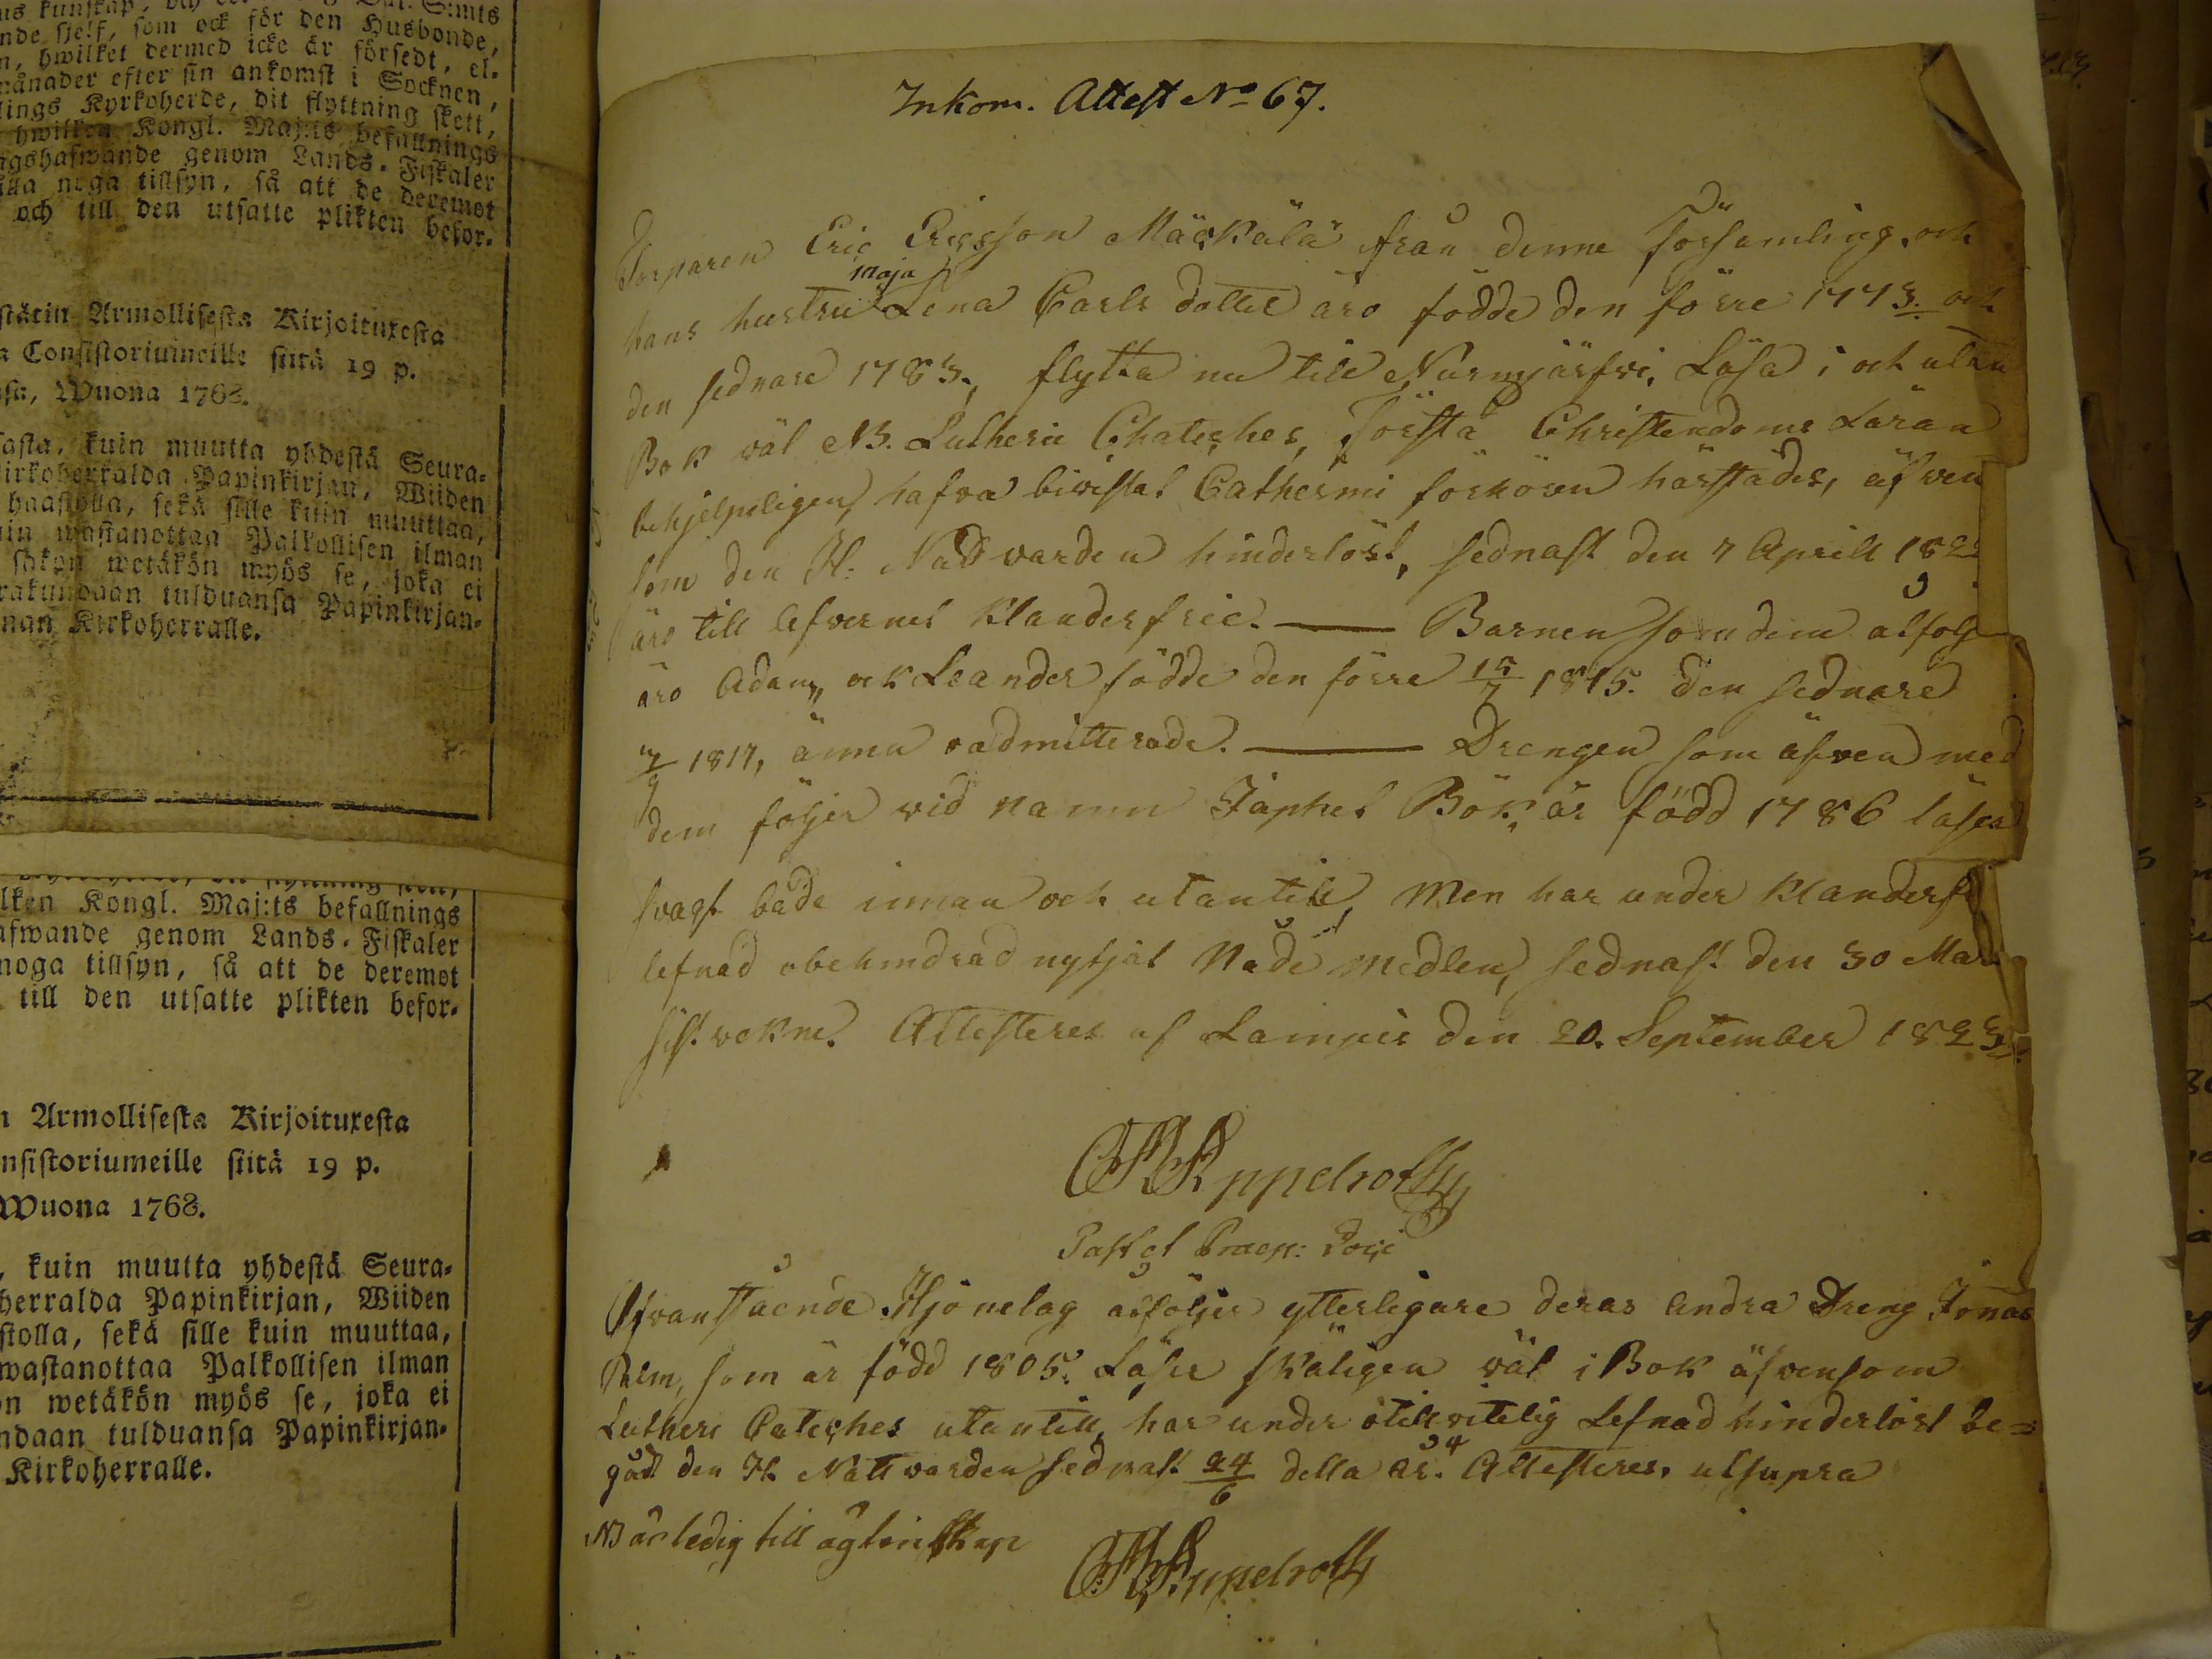 us kunskap, och
nde sjelf, som ock för den Husbonde,
n, hwilket dermed icke är försedt, el-
månader efter sin ankomst i Socknen,
lings Kyrkoherde, dit flyttning skett,
hwilken Kongl. Maj:ts befallnings
ngshafwande genom Lands-Fiskaler
noga tillsyn, så att de deremot
och till den utsatte plikten befor-
stätin Armollisesta Kirjoituxesta
a Consistoriumeille siitä 19 p.
Wuona 1768.
asta, kuin muutta yhdestä Seura-
irkoherralda Papinkirjan, Wiiden
haastolla, sekä sille kuin muuttaa,
in wastanottaa Palkollisen ilman
sakon wetäkön myös se, joka ei
rakundaan tulduansa Papinkirjan-
nan Kirkoherralle.
lken Kongl. Maj:ts befallnings
afwande genom Lands-Fiskaler
noga tillsyn, så att de deremot
till den utsatte plikten befor-
n Armollisesta Kirjoituxesta
nsistoriumeille siitä 19 p.
Wuona 1768.
, kuin muutta yhdestä Seura-
herralda Papinkirjan, Wiiden
stolla, sekä sille kuin muuttaa,
wastanottaa Palkollisen ilman
on wetäkön myös se, joka ei
ndaan tulduansa Papinkirjan-
Kirkoherralle.
Inkom. Attest No 67.
Torparen Eric Ericsson Mäckälä från denne församling, och
maja
hans hustru Lena Carls dotter äro födde den förre 1773. och
den sednare 1783., flytta nu till Nurmijärfvi, Läsa i och utan
Bok väl NB. Lutheri Chateches, Förstå Christendoms Läran
behjelpeligen, hafva bivistat Cathesmi förhören härstädes, äfven
som den H. Nattvarden hinderlöst, sednast den 7 April 182
äro till lefvernet klanderfrie. — Barnen som dem åtfölj
äro Adam, och Leander födde den förre 15/7 1815. den sednare
7/9 1817, ännu oadmitterade. — Drengen som äfven med
dem följer vid namn Japhet Böök, är född 1786 läser
svagt både innan och utantill, Men har under klanderf
lefnad obehindrad nytjat Nåde medlen, sednast den 30 Mar
sist vekne. Attesteres af Lampis den 20. September 1823.
Appelroth
Past et Praep: Loci
Ofvanstående Hjonelag åtföljer ytterligare deras andra Dreng Jonas
Palm, som är född 1805. Läser skäligen väl i Bok äfvensom
Lutheri Cateches utantill, har under otillvitelig Lefnad hinderlöst be=
gått den H. Nattvarden sednast 24/6 detta år. Attesteres, utsupra
NB är ledig till ägtenskap
Appelroth